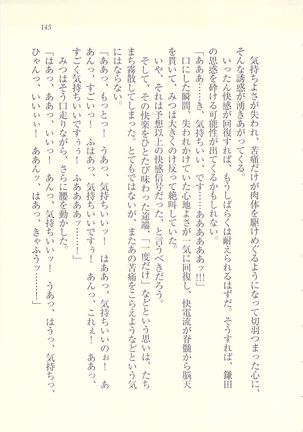 145
気持ちよさが失われ、苦痛だけが肉体を駆けめぐるようになって切羽つまった心に、
そんな誘惑が湧きあがってくる。
いったん快感が回復すれば、もうしばらくは耐えられるはずだ。そうすれば、鎌田
の思惑を砕ける可能性が出てくるかもしれない。
「あああ……き、気持ちいい、です……ああああああぁッ!!!」
口にした瞬間、失われかけていた心地よさが一気に回復し、快電流が脊髄から脳天
を貫いて、みつは大きくのけ反って絶叫していた。
いや、それは予想以上の快感信号だった、と言うべきだろう。
そして、その快楽をひとたび味わった途端、「一度だけ」などという思いは、たち
まち霧散してしまった。とてもではないが、またあの苦痛をこらえようなどという気
にはならない。
「ああっ、もっとっ! うあっ、気持ちいいッ! はああっ、気持ちいいのぉ! あ
あんっ、すごいっ! ふはあっ、気持ちいいですぅ! あんっ、これぇ! ああっ、
すごく気持ちいいですぅぅ! ふああああッ……」
みつはそう口走りながら、さらに腰を動かした。
「はあっ、ああっ、いいっ! あんっ、気持ちいいッ! うあっ、はうっ、気持ちっ、
ひゃんっ、いいぃぃ! ああんッ、はあっ、きゃふうッ……!」